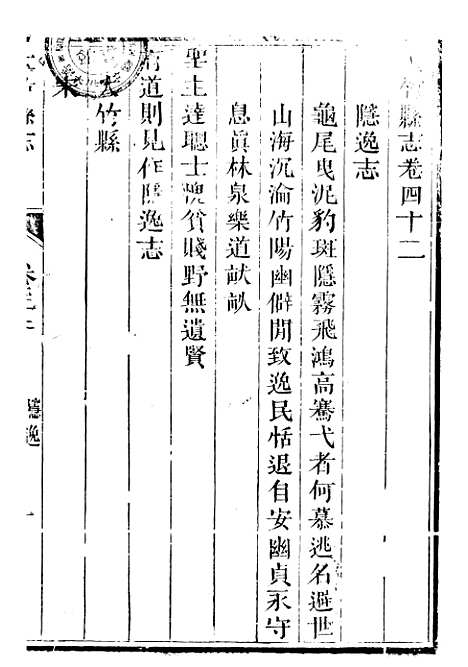 竹縣志卷四十二
隱逸志
龜尾曳泥豹斑隱霧飛鴻高騫弋者何慕逃名避世
山海沉淪竹陽幽僻閒致逸民恬退自安幽貞永守
息眞林泉樂道畎畝
聖主達聰士愧貧賤野無遺賢
有道則見作隱逸志
大竹縣
宋
竹縣志
隱逸
一